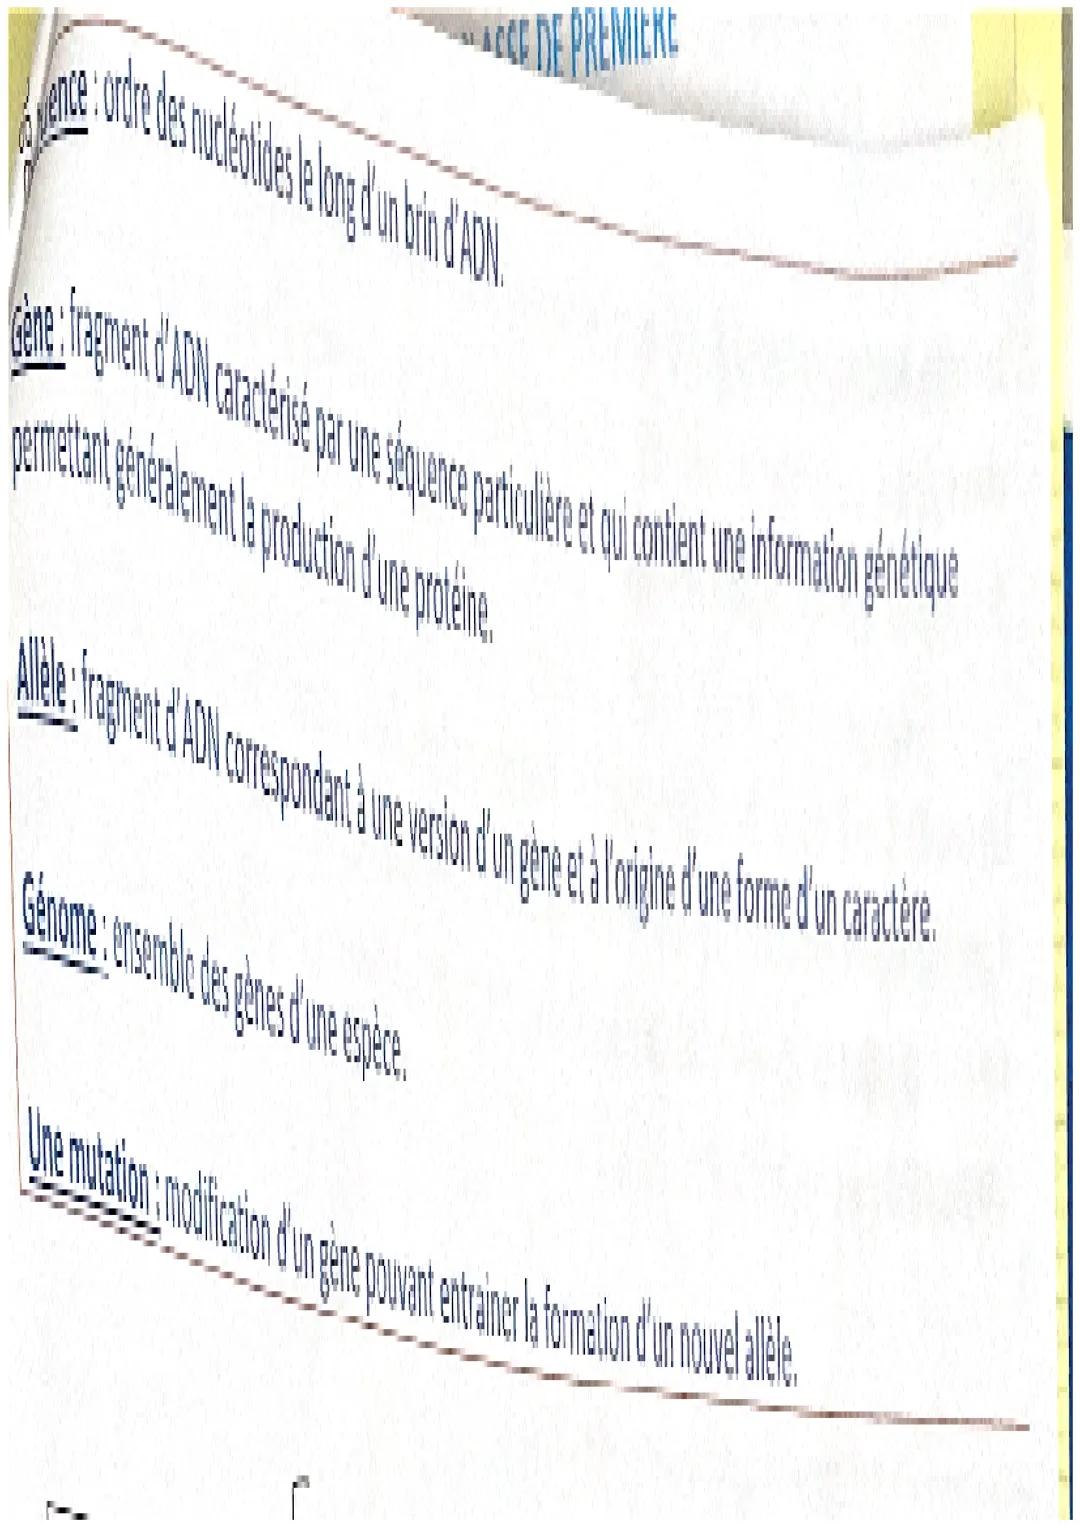 DE PREMIERE
ence : ordre des nucléotides le long d'un brin d'ADN.
Gène : fragment d'ADN caractérisé par une séquence particulière et qui contient une information génétique
permettant généralement la production d'une protéine.
Allèle : fragment d'ADN correspondant à une version d'un gène et à l'origine d'une forme d'un caractère.
Génome : ensemble des gènes d'une espèce.
Une mutation : modification d'un gène pouvant entrainer la formation d'un nouvel allèle.